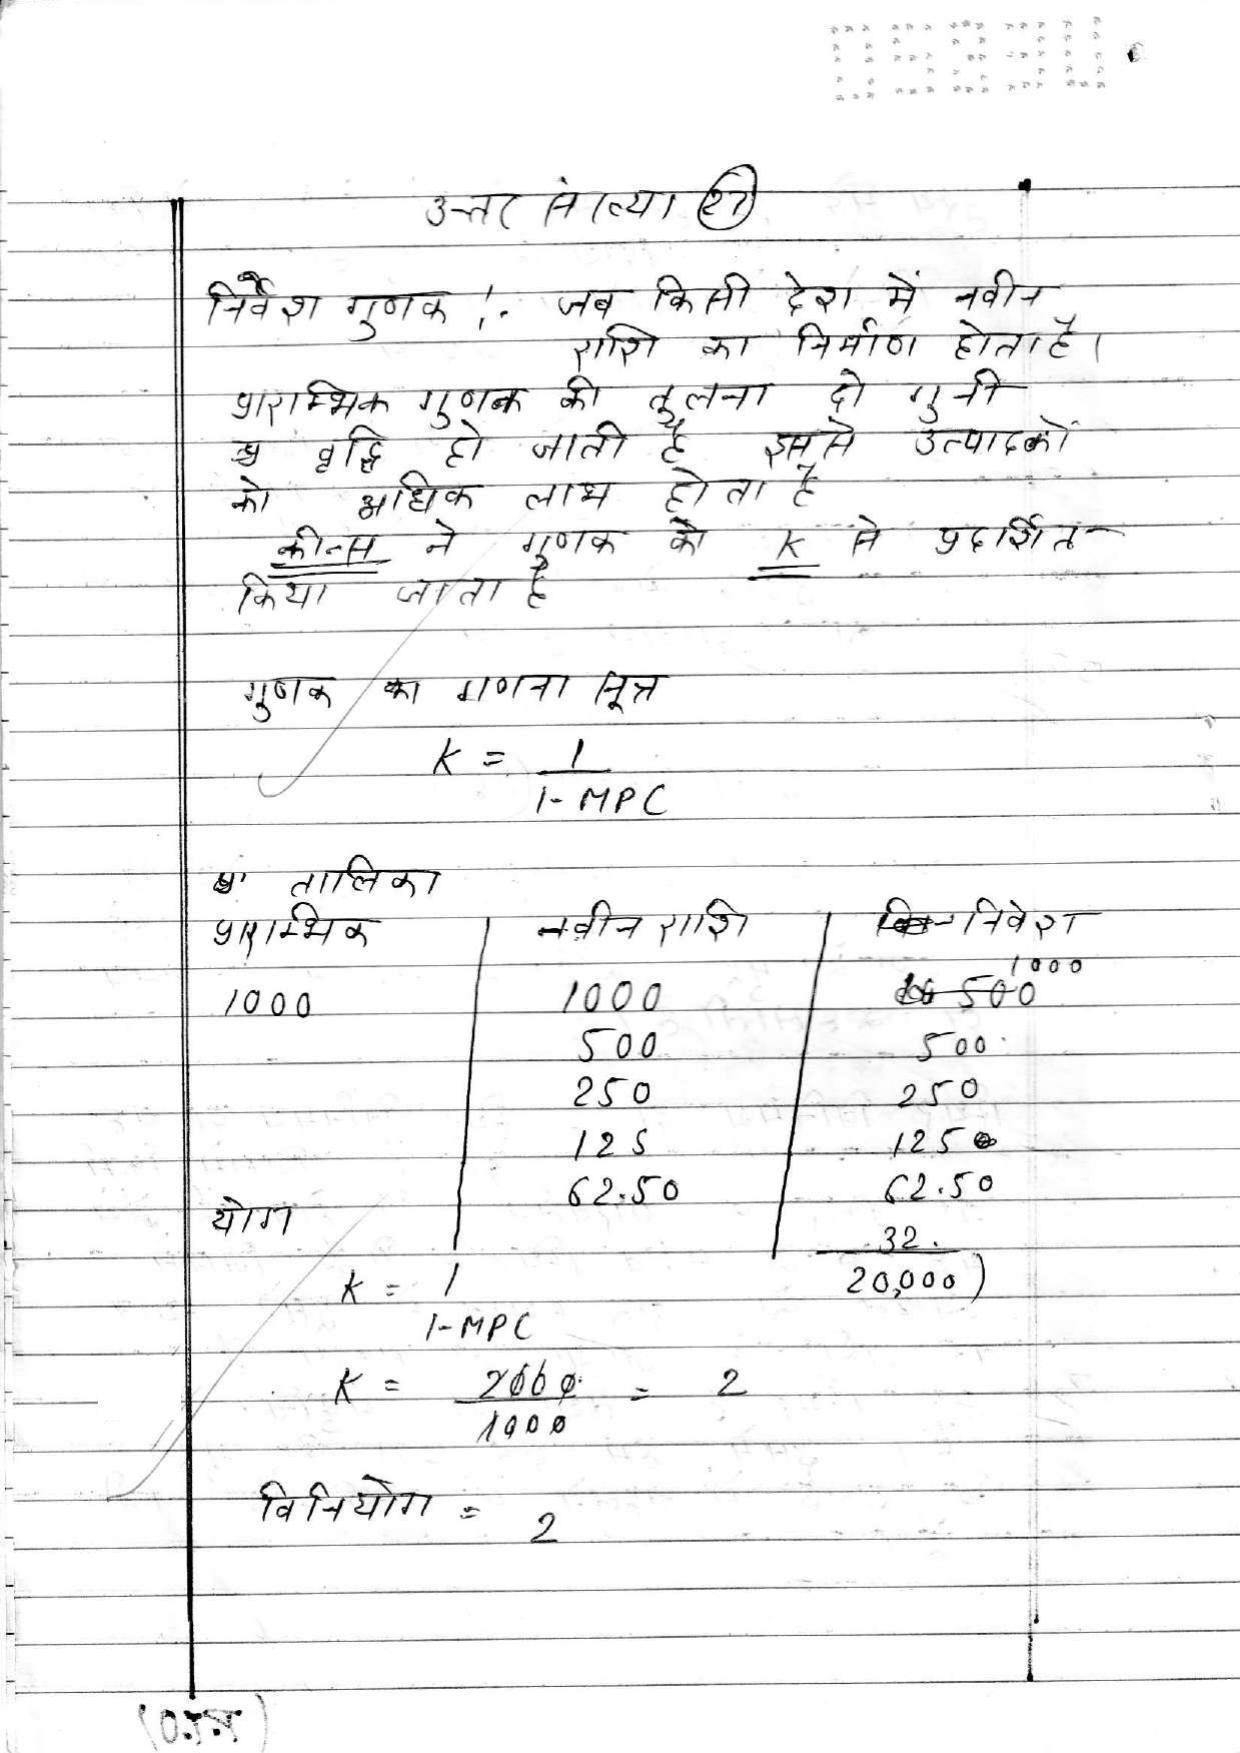 उत्तर संख्या (27)
निवेश गुणक :- जब किसी देश में नवीन
राशि का निर्माण होता है।
प्रारम्भिक गुणक की तुलना दो गुनी
वृद्धि हो जाती है इससे उत्पादकों
को अधिक लाभ होता है
कीन्स ने गुणक को K से प्रदर्शित
किया जाता है
गुणक का गणना सूत्र
K = 1
1- MPC
तालिका
प्रारम्भिक नवीन राशि निवेश
1000
1000 1000 500
500 500
250 250
125 125
62.50 62.50
योग
32.
K = 1 20,000)
1-MPC
K = 2000 = 2
1000
विनियोग = 2